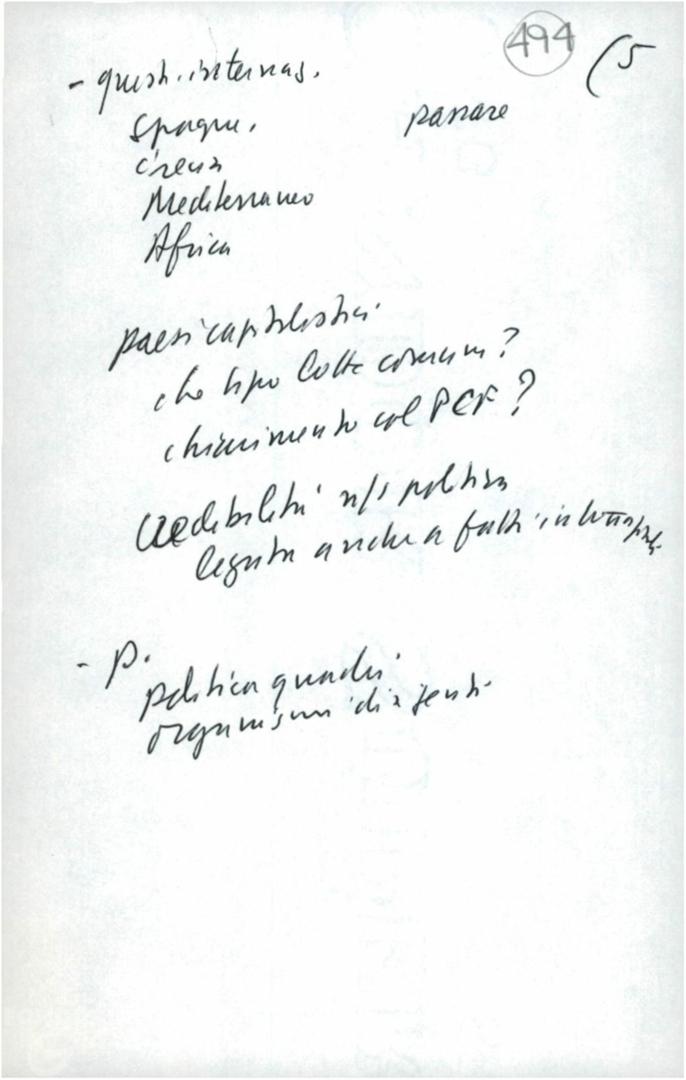 494 (5
- quest. internaz.
Spagna, passare
Grecia
Mediterraneo
Africa
paesi capitalistici
che tipo lotte comuni?
chiarimento col PCF?
credibilità ns/ politica
legata anche a fatti
- P.
politica quadri
organismi dirigenti